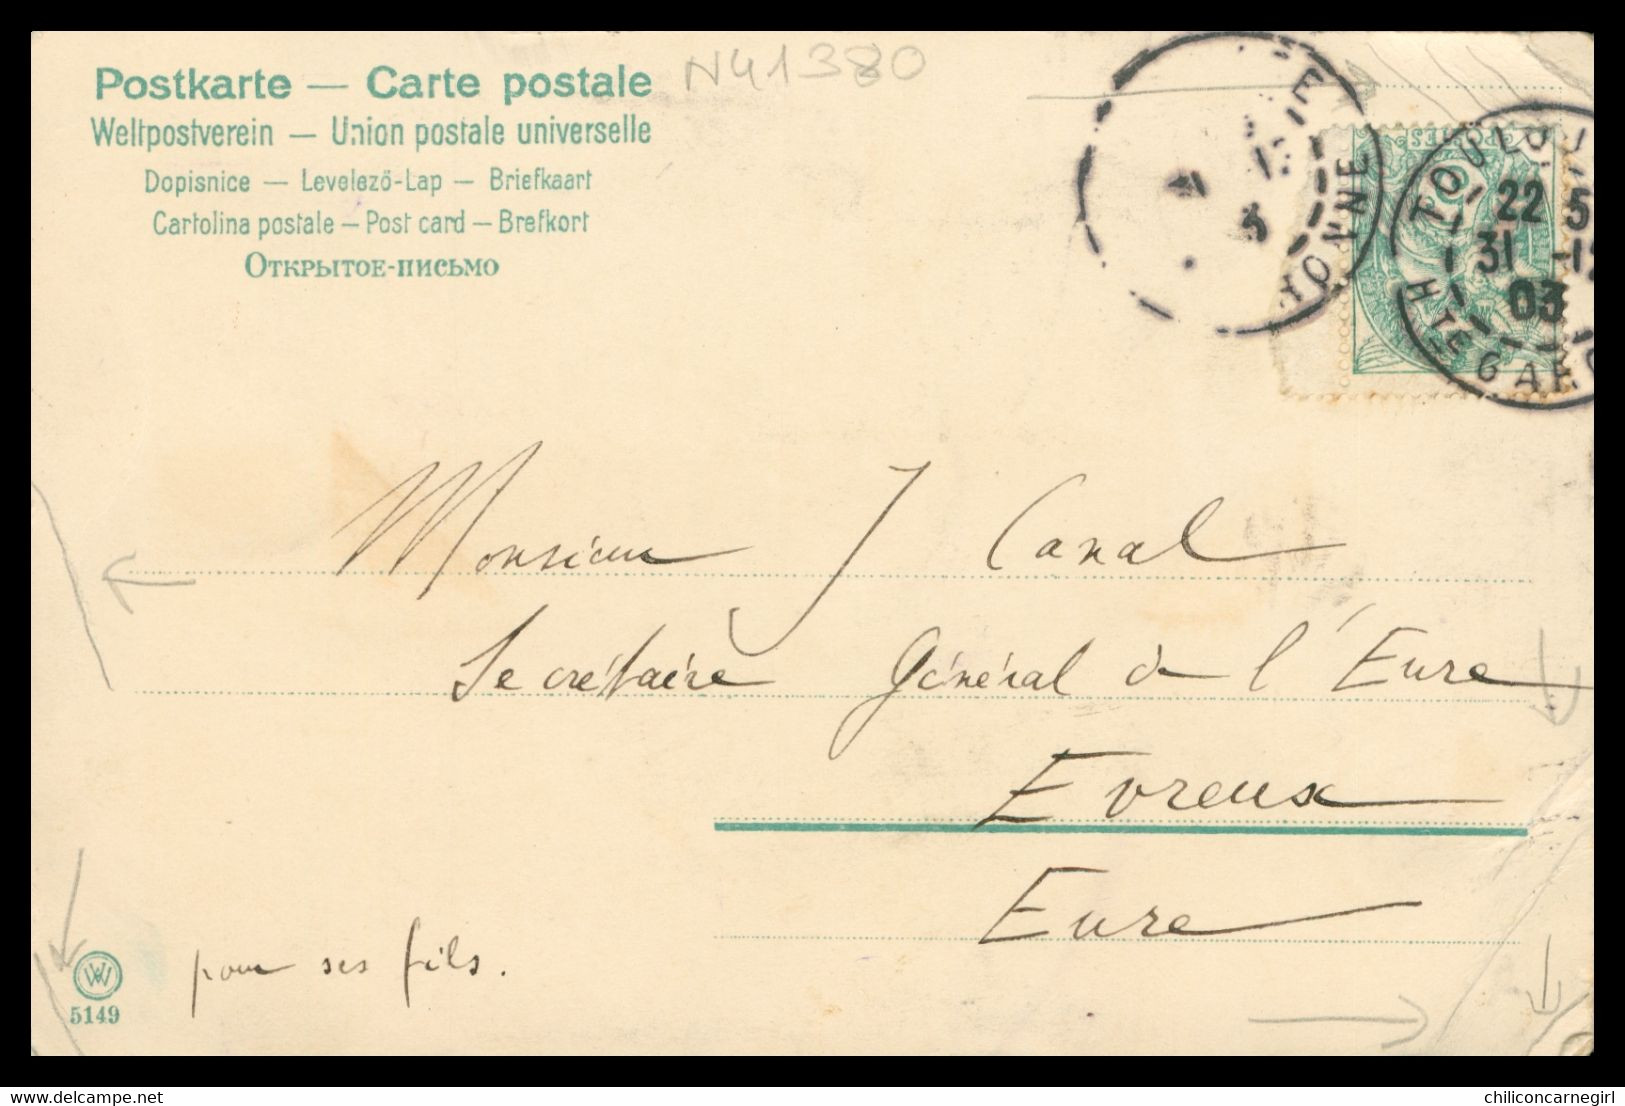 N41380
Postkarte — Carte postale
Weltpostverein — Union postale universelle
Dopisnice — Levelező-Lap — Briefkaart
Cartolina postale — Post card — Brefkort
Открытое-письмо
YONNE
POSTES
TOULOU
22 5
31 -12
03
HTE GARO
Monsieur J Canal
Secrétaire Général de l'Eure
Evreux
Eure
pour ses fils.
5149
https://www.delcampe.net
chiliconcarnegirl